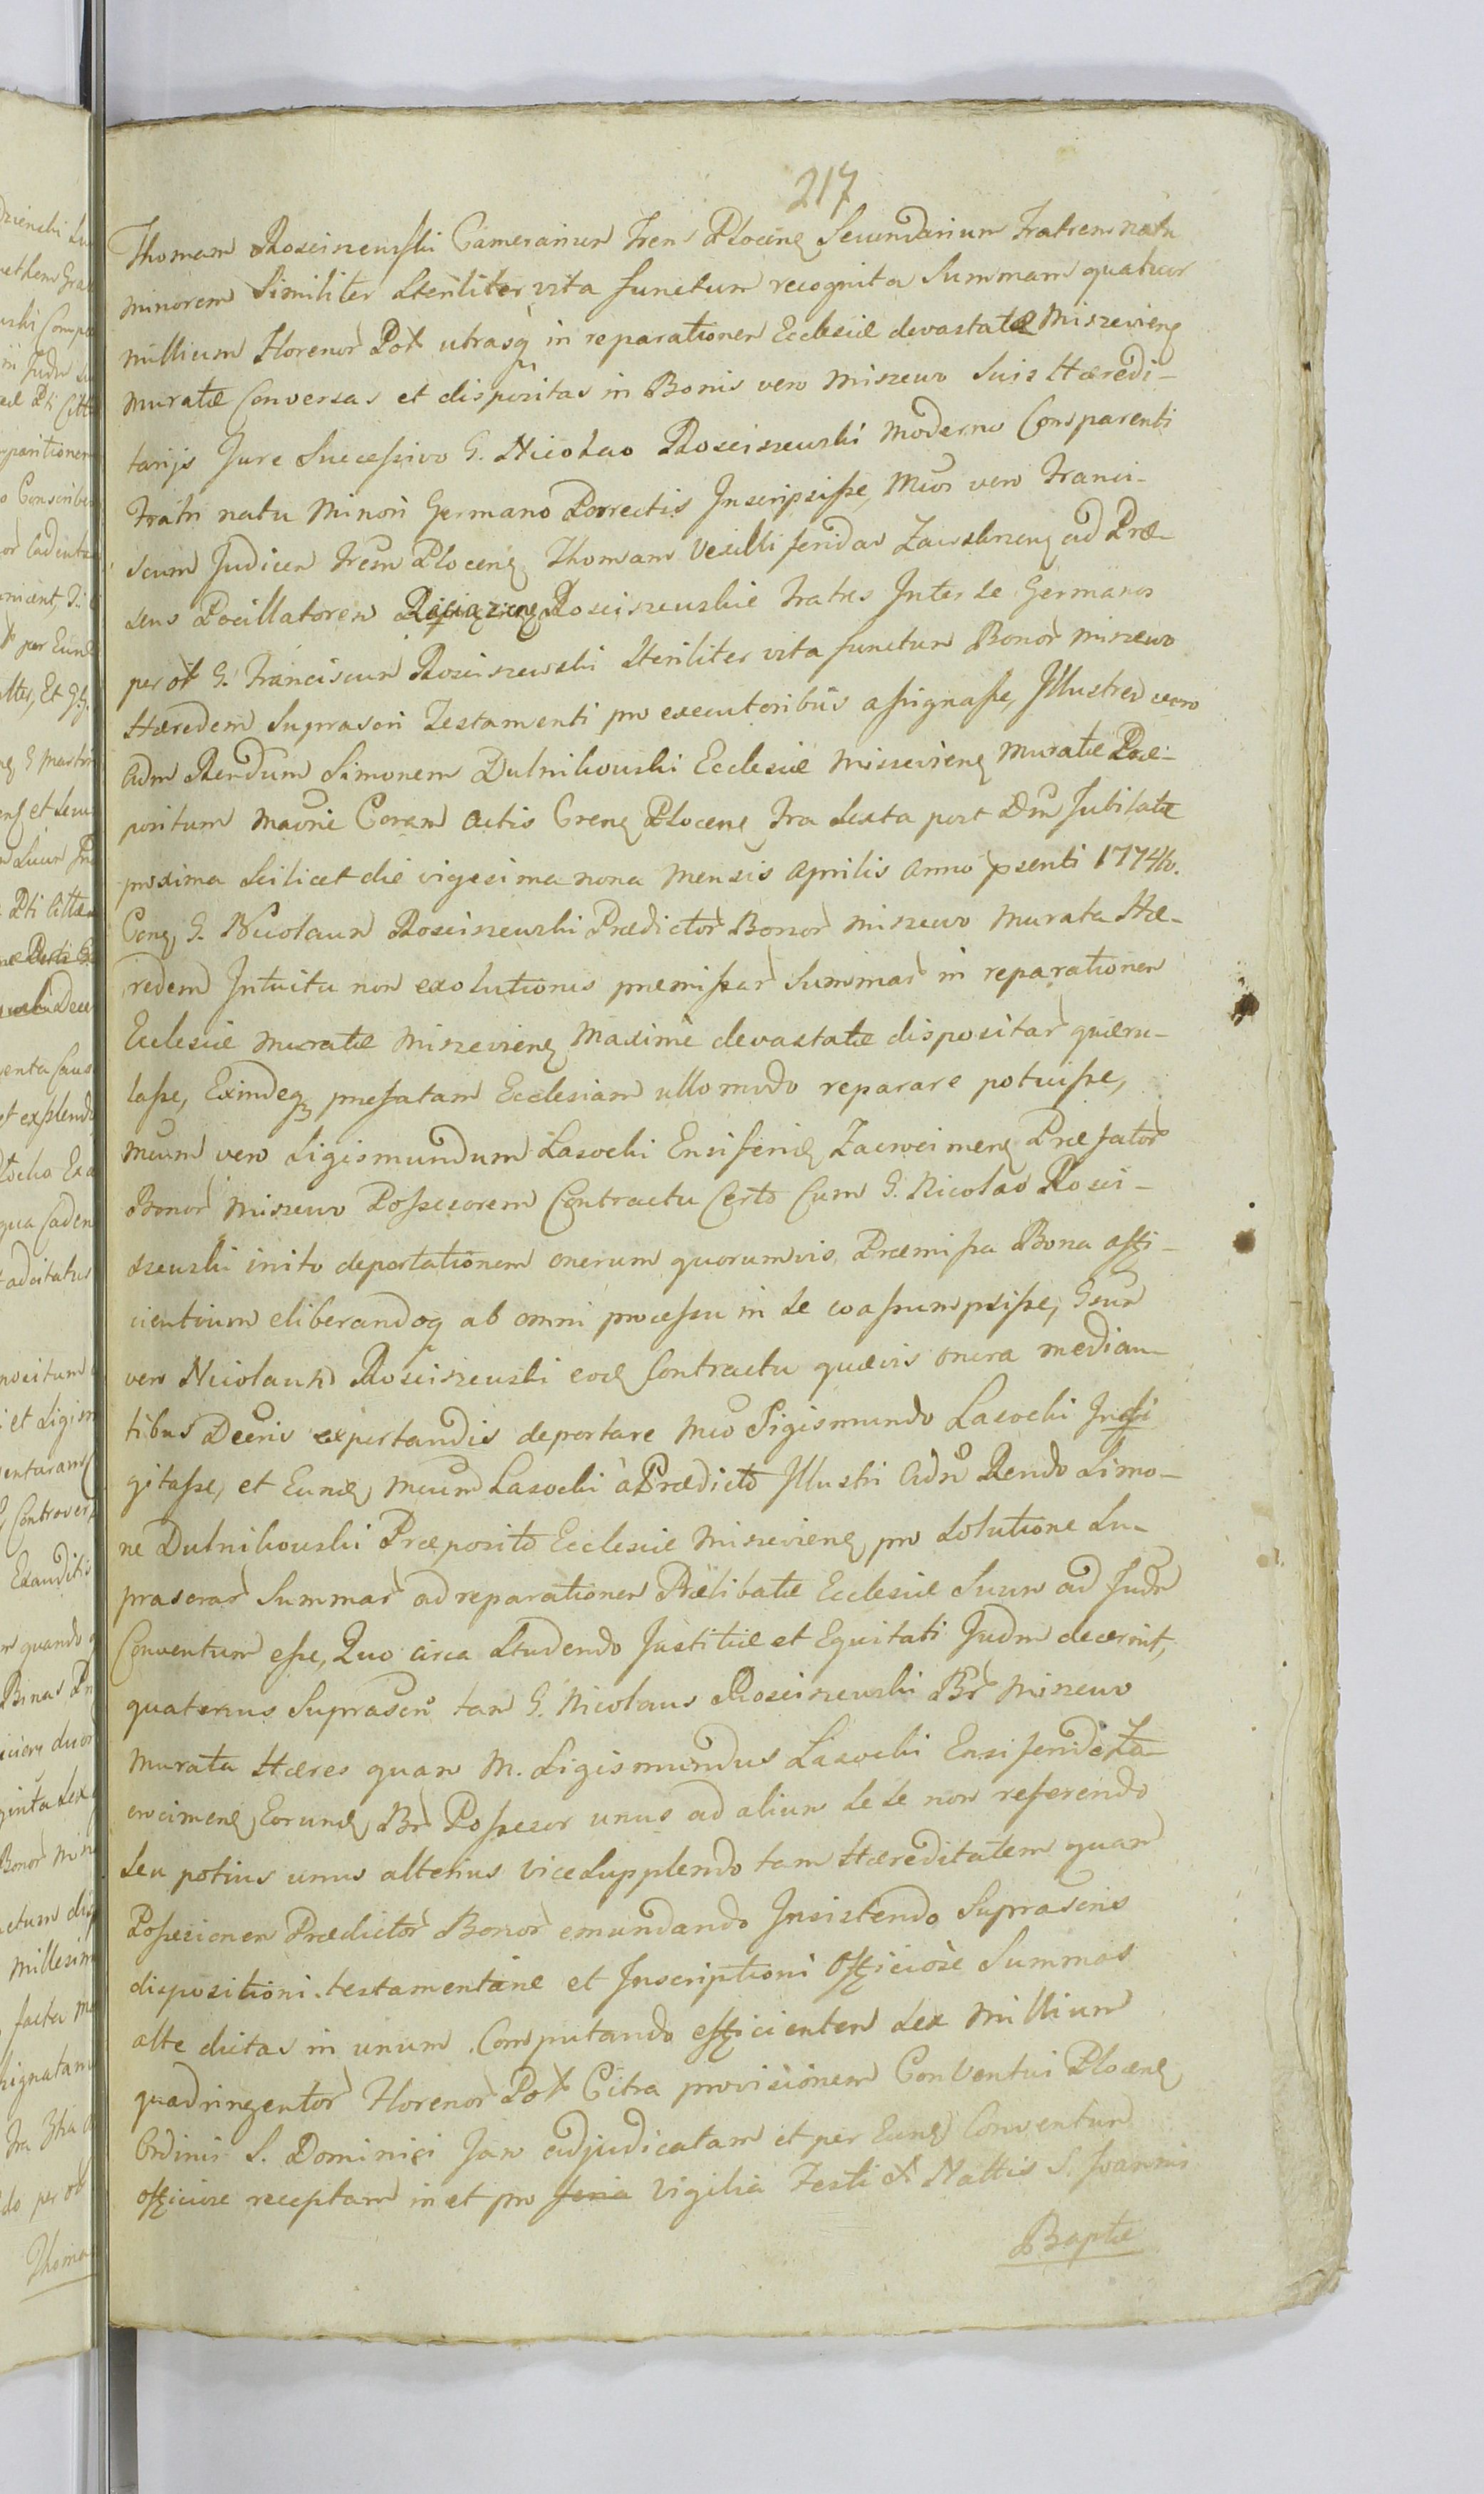 217
Thomam Rosciszewski Camerarium Trem Plocen Secundarium Fratrem natu
minorem Similiter Steriliter vita functum recognita Summam quatuor
millium Florenor Pol utrasq in reparationem Ecclesiæ devastatæ Miszewien
muratæ Conversas et dispositas in Bonis vero Miszewo Suis Hæredi-
tarijs Jure Successivo G. Nicolao Rosciszewski moderno Comparenti
Fratri natu Minori Germano Porrectis Inscripsisse, Mcos vero Franci-
scum Judicem Trem Plocen Thomam Vexilliferidas Zawskrzen ad Præ-
sens Pocillatorem Raciazen Rosciszewskie Fratres Inter se Germanos
per ol G. Franciscum Rosciszewski Steriliter vita functum Bonor Miszewo
Hæredem Suprascri Testamenti pro executoribus assignasse, Illustrem vero
Adm Rendum Simonem Dulnikowski Ecclesiæ Miszewien Muratæ Præ-
positum Coram Actis Cren Plocen Fra Sexta post Dm Jubilate
proxima Scilicet die vigesima nona Mensis Aprilis Anno psenti 1774to.
Con G. Nicolaum Rosciszewski Prædictor Bonor Miszewo Murata Hæ-
redem Intuitu non exolutionis præmissar Summar in reparationem
Ecclesiæ muratæ Miszewien Maxime devastatæ dispositar quæru-
lasse, Exindeq prefatam Ecclesiam ullo modo reparare potuisse,
Mcum vero Sigismundum Lasocki Ensiferid Zacroimen Præfator
Bonor Miszewo Possesorem Contractu Certo Cum G. Nicolao Rosci-
szewski inito deportationem onerum quorumvis Præmissa Bona affi-
cientium eliberandoq ab omni processu in se coassumpsisse, Gsum
vero Nicolaum Rosciszewski eod Contractu quævis onera median-
tibus Decris exportandis deportare Mco Sigismundo Lasocki
gitasse, et Eund Mcum Lasocki à Prædicto Illustri Adm Rendo Simo-
ne Dulnikowski Præposito Ecclesiæ Miszewien pro Solutione Su-
prascrar Summar ad reparationem Prælibatæ Ecclesiæ Suum ad Judm
Conventum esse, Quo circa Studendo Justitiæ et Equitati Judm decernit,
quatenus Suprascri tam G. Nicolaus Rosciszewski Br Miszewo
Murata Hæres quam M. Sigismundus Lasocki Ensiferid Za-
crocimen Eorund Br Possesor unus ad alium se se non referendo
seu potius unus alterius vice Supplendo tam Hæreditatem quam
Possesionem Prædictor Bonor emundando Insistendo Suprascris
dispositioni testamentariæ et Inscriptioni Officiosè Summas
alte dictas in unum Computando efficientem sex Millium
quadringentor Florenor Pol Citra provisionem Conventui Plocen
Ordinis S. Dominici Jam adjudicatam et per Eund Conventum
officiose receptam in et pro feria Vigilia Festi Nattis S. Joannis
Baptæ